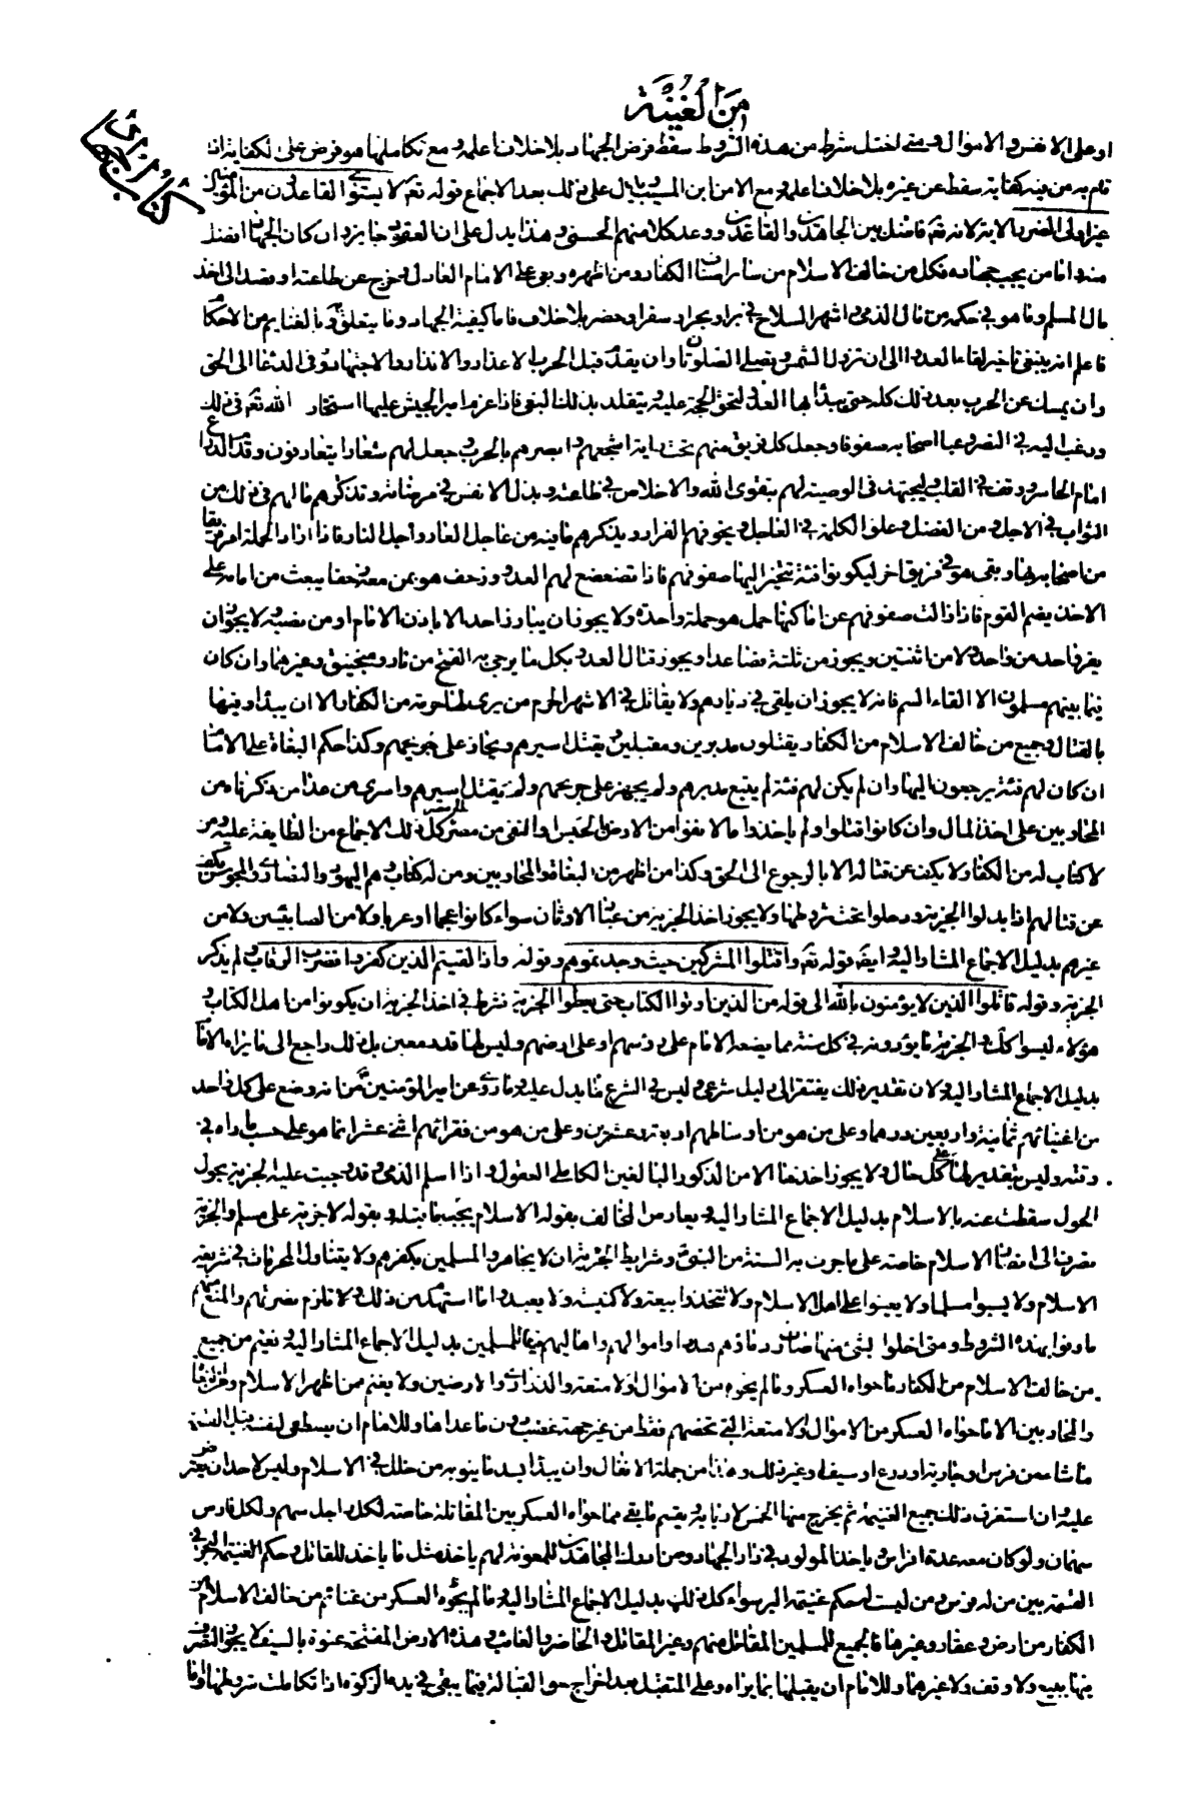 من الغنية
كتاب الجهاد
او على الانفس والاموال ومتى اختل شرط من هذه الشروط سقط فرض الجهاد بلا خلاف اعلمه ومع تكاملها هو فرض على الكفاية اذا
قام به من فيه كفاية سقط عن غيره بلا خلاف اعلمه مع الا من ابن المسيب يدل على ذلك بعد الاجماع قوله تعم لا يستوى القاعدون من المؤمنين
غير اولى الضرر الاية لانه تعم فاضل بين المجاهدين والقاعدين ووعد كلا منهم الحسنى وهذا يدل على ان القعود جايز وان كان الجهاد افضل
منه واما من يجب جهاده فكل من خالف الاسلام من ساير اصناف الكفار ومن اظهره وبغى على الامام العادل وخرج عن طاعته او قصد الى اخذ
مال المسلم وما هو في حكمه من مال الذمى واشهر السلاح في بر او بحر او سفر او حضر بلا خلاف فاما كيفية الجهاد وما يتعلق به وبالغنايم من الاحكام
فاعلم انه ينبغى تاخير لقاء العدو الى ان تزول الشمس ويصلى الصلوتان وان يقدم قبل الحرب الاعذار والانذار والاجتهاد في الدعا الى الحق
وان يمسك عن الحرب بعد ذلك كله حتى يبدأ بها العدو لتحق الحجة عليه ويتقلد بذلك البغى فاذا عزم امير الجيش عليها استخار الله تعم في ذلك
ورغب اليه في النصر وعبا اصحابه صفوفا وجعل كل فريق منهم تحت راية اشجعهم وابصرهم بالحرب وجعل لهم شعارا يتعارفون وقدم الدراع
امام الحاسر ووقف في القلب وليجتهد في الوصية لهم بتقوى الله والاخلاص في طاعته وبذل الانفس في مرضاته وتذكرهم مالهم في ذلك من
الثواب في الاجل ومن الفضل وعلو الكلمة في العاجل ويخوفهم الفرار ويذكرهم ما فيه من عاجل العار واجل النار فاذا اراد الحملة امر فريقا
من اصحابه بها وبقى هو في فريق اخر ليكونوا فئة تتحيز اليها صفوفهم فاذا تضعضع لهم العدو زحف هو بمن معه زحفا يبعث من امامه على
الاخذ بضم القوم فاذا زالت صفوفهم عن اماكنها حمل هو حملة واحدة ولا يجوز ان يبارز احد الا باذن الامام او من نصبه ولا يجوز ان
يفر واحد من واحد ولا من اثنتين ويجوز من ثلثة فصاعدا ويجوز قتال العدو بكل ما يرجى به الفتح من نار ومنجنيق وغيرهما وان كان
فيما بينهم مسلمون الا القاء السم فانه لا يجوز ان يلقى في ديارهم ولا يقاتل في الاشهر الحرم من يرى لها حرمة من الكفار الا ان يبدأوا فيها
بالقتال وجميع من خالف الاسلام من الكفار يقتلون مدبرين ومقبلين ويقتل اسيرهم ويجاز على جريحهم وكذا حكم البغاة على الامام
ان كان لهم فئة يرجعون اليها وان لم يكن لهم فئة لم يتبع مدبرهم ولم يجهز على جريحهم ولم يقتل اسيرهم واسرى من عدا من ذكرناه من
المحاربين على اخذ المال وان كانوا قتلوا ولم ياخذوا مالا نفوا من الارض بالحبس او النفى من مصر الى مصر كل ذلك بالاجماع من الطايفة عليه ومن
لا كتاب له من الكفار لا يكف عن قتاله الا بالرجوع الى الحق وكذا من اظهر من البغاة والمحاربين ومن له كتاب وهم اليهود والنصارى والمجوس يكف
عن قتالهم اذا بذلوا الجزية ودخلوا تحت شروطها ولا يجوز اخذ الجزية من عباد الاوثان سواء كانوا عجما او عربا ولا من الصابئين ولا من
غيرهم بدليل الاجماع المشار اليه وايضا قوله تعم واقتلوا المشركين حيث وجدتموهم وقوله واذا لقيتم الذين كفروا فضرب الرقاب ولم يذكر
الجزية وقوله قاتلوا الذين لا يؤمنون بالله الى قوله من الذين اوتوا الكتاب حتى يعطوا الجزية فشرط في اخذ الجزية ان يكونوا من اهل الكتاب و
هؤلاء ليسوا كك والجزية ما يؤدونه في كل سنة مما يضعه الامام على رؤسهم او على ارضهم وليس لها قدر معين بل ذلك راجع الى ما يراه الامام
بدليل الاجماع المشار اليه ولان تقدير ذلك يفتقر الى دليل شرعى وليس في الشرع ما يدل عليه وما روى عن امير المؤمنين من انه وضع على كل واحد
من اغنيائهم ثمانية واربعين درهما وعلى من هو من اوساطهم اربعة وعشرين وعلى من هو من فقرائهم اثنى عشر انما هو على حسب ما راه في
وقته وليس بتقدير لها على كل حال ولا يجوز اخذها الا من الذكور البالغين الكاملى العقول واذا اسلم الذمى وقد وجبت عليه الجزية بحول
الحول سقطت عنه بالاسلام بدليل الاجماع المشار اليه ويعارض المخالف بقوله الاسلام يجب ما قبله وبقوله لا جزية على مسلم والجزية
تصرف الى انصار الاسلام خاصة على ما جرت به السنة من النبى ص وشرايط الجزية ان لا يجاهروا المسلمين بكفرهم ولا يتناول المحرمات في شريعة
الاسلام ولا يسبوا مسلما ولا يعينوا على اهل الاسلام ولا يتخذوا بيعة ولا كنيسة ولا يعيدوا ما استهدم من ذلك ولا تلزم نصرتهم والمنع منهم
ما وفوا بهذه الشروط ومتى اخلوا بشئ منها صارت دماؤهم هدرا واموالهم واهاليهم فيئا للمسلمين بدليل الاجماع المشار اليه ويغنم من جميع
من خالف الاسلام من الكفار ما حواه العسكر وما لم يحوه من الاموال والامتعة والذرارى والارضين ولا يغنم ممن اظهر الاسلام من البغاة
والمحاربين الا ما حواه العسكر من الاموال والامتعة التى تخصهم فقط من غير جهة غصب دون ما عداها وللامام ان يصطفى لنفسه قبل القسمة
ما شاء من فرس او جارية او درع او سيف او غير ذلك وهذا من جملة الانفال وان يبدأ بسد ما ينوبه من خلل في الاسلام وليس لاحد ان يعترض
عليه وان استغرق ذلك جميع الغنيمة ثم يخرج منها الخمس لاربابه ويقسم ما بقى مما حواه العسكر بين المقاتلة خاصة لكل راجل سهم ولكل فارس
سهمان ولو كان معه عدة افراس وياخذ المولود في دار الجهاد ومن ادرك المجاهدين للمعونة لهم ياخذ مثل ما ياخذ المقاتل وحكم الغنيمة في البحر في
القسمة بين من له فرس ومن ليس له حكم غنيمة البر سواء كل ذلك بدليل الاجماع المشار اليه وما لم يحوه العسكر من غنائم من خالف الاسلام من
الكفار من ارض وعقار وغيرهما فالجميع للمسلمين المقاتل منهم وغير المقاتل والحاضر والغائب وهذه الارض المفتتحة عنوة بالسيف لا يجوز التصرف
فيها ببيع ولا وقف ولا غيرهما وللامام ان يقبلها بما يراه وعلى المتقبل بعد اخراج حق القبالة فيما يبقى في يده الزكوة اذا تكاملت شروطها واما